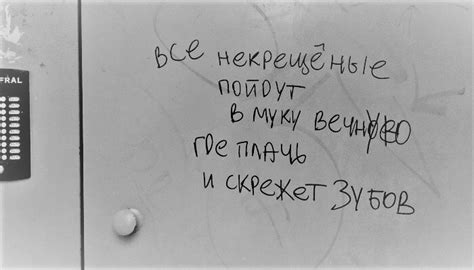 FRAL
ВСЕ НЕКРЕЩЁНЫЕ
ПОЙДУТ
В МУКУ
ГДЕ ПЛАЧЬ
И СКРЕЖЕТ ЗУБОВ